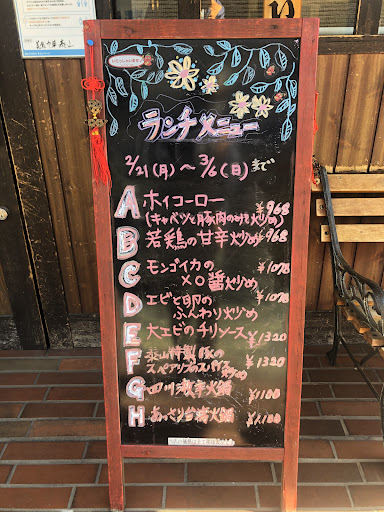 ランチメニュー
2/21(月)～3/6(日)まで
A ホイコーロー
(キャベツと豚肉のみそ炒め) ¥968
B 若鶏の甘辛炒め 968
C モンゴイカの
XO醤炒め ¥1078
D エビと卵の
ふんわり炒め ¥1078
E 大エビのチリソース ¥1320
F 泰山特製豚の
スペアリブのスパイス ¥1320
G 四川激辛火鍋 ¥1100
H あっさり台湾火鍋 ¥1,100
い